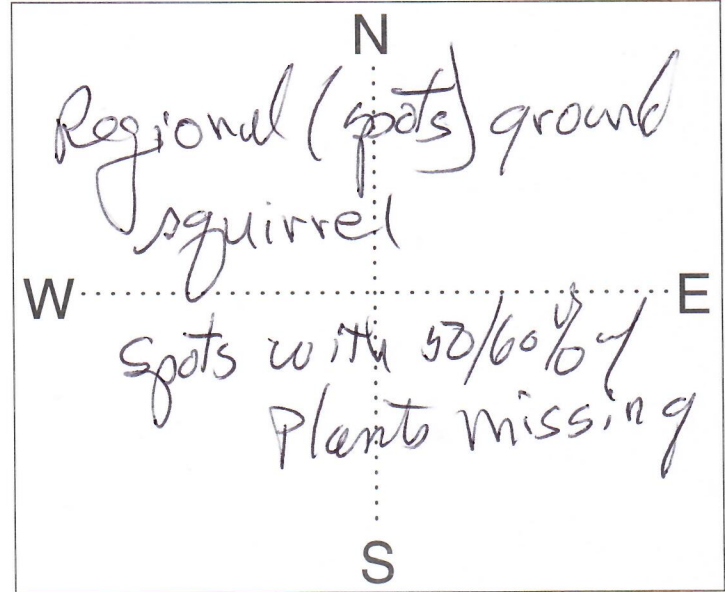 N
Regional (spots) ground
squirrel
W E
spots with 50/60% of
Plants missing
S